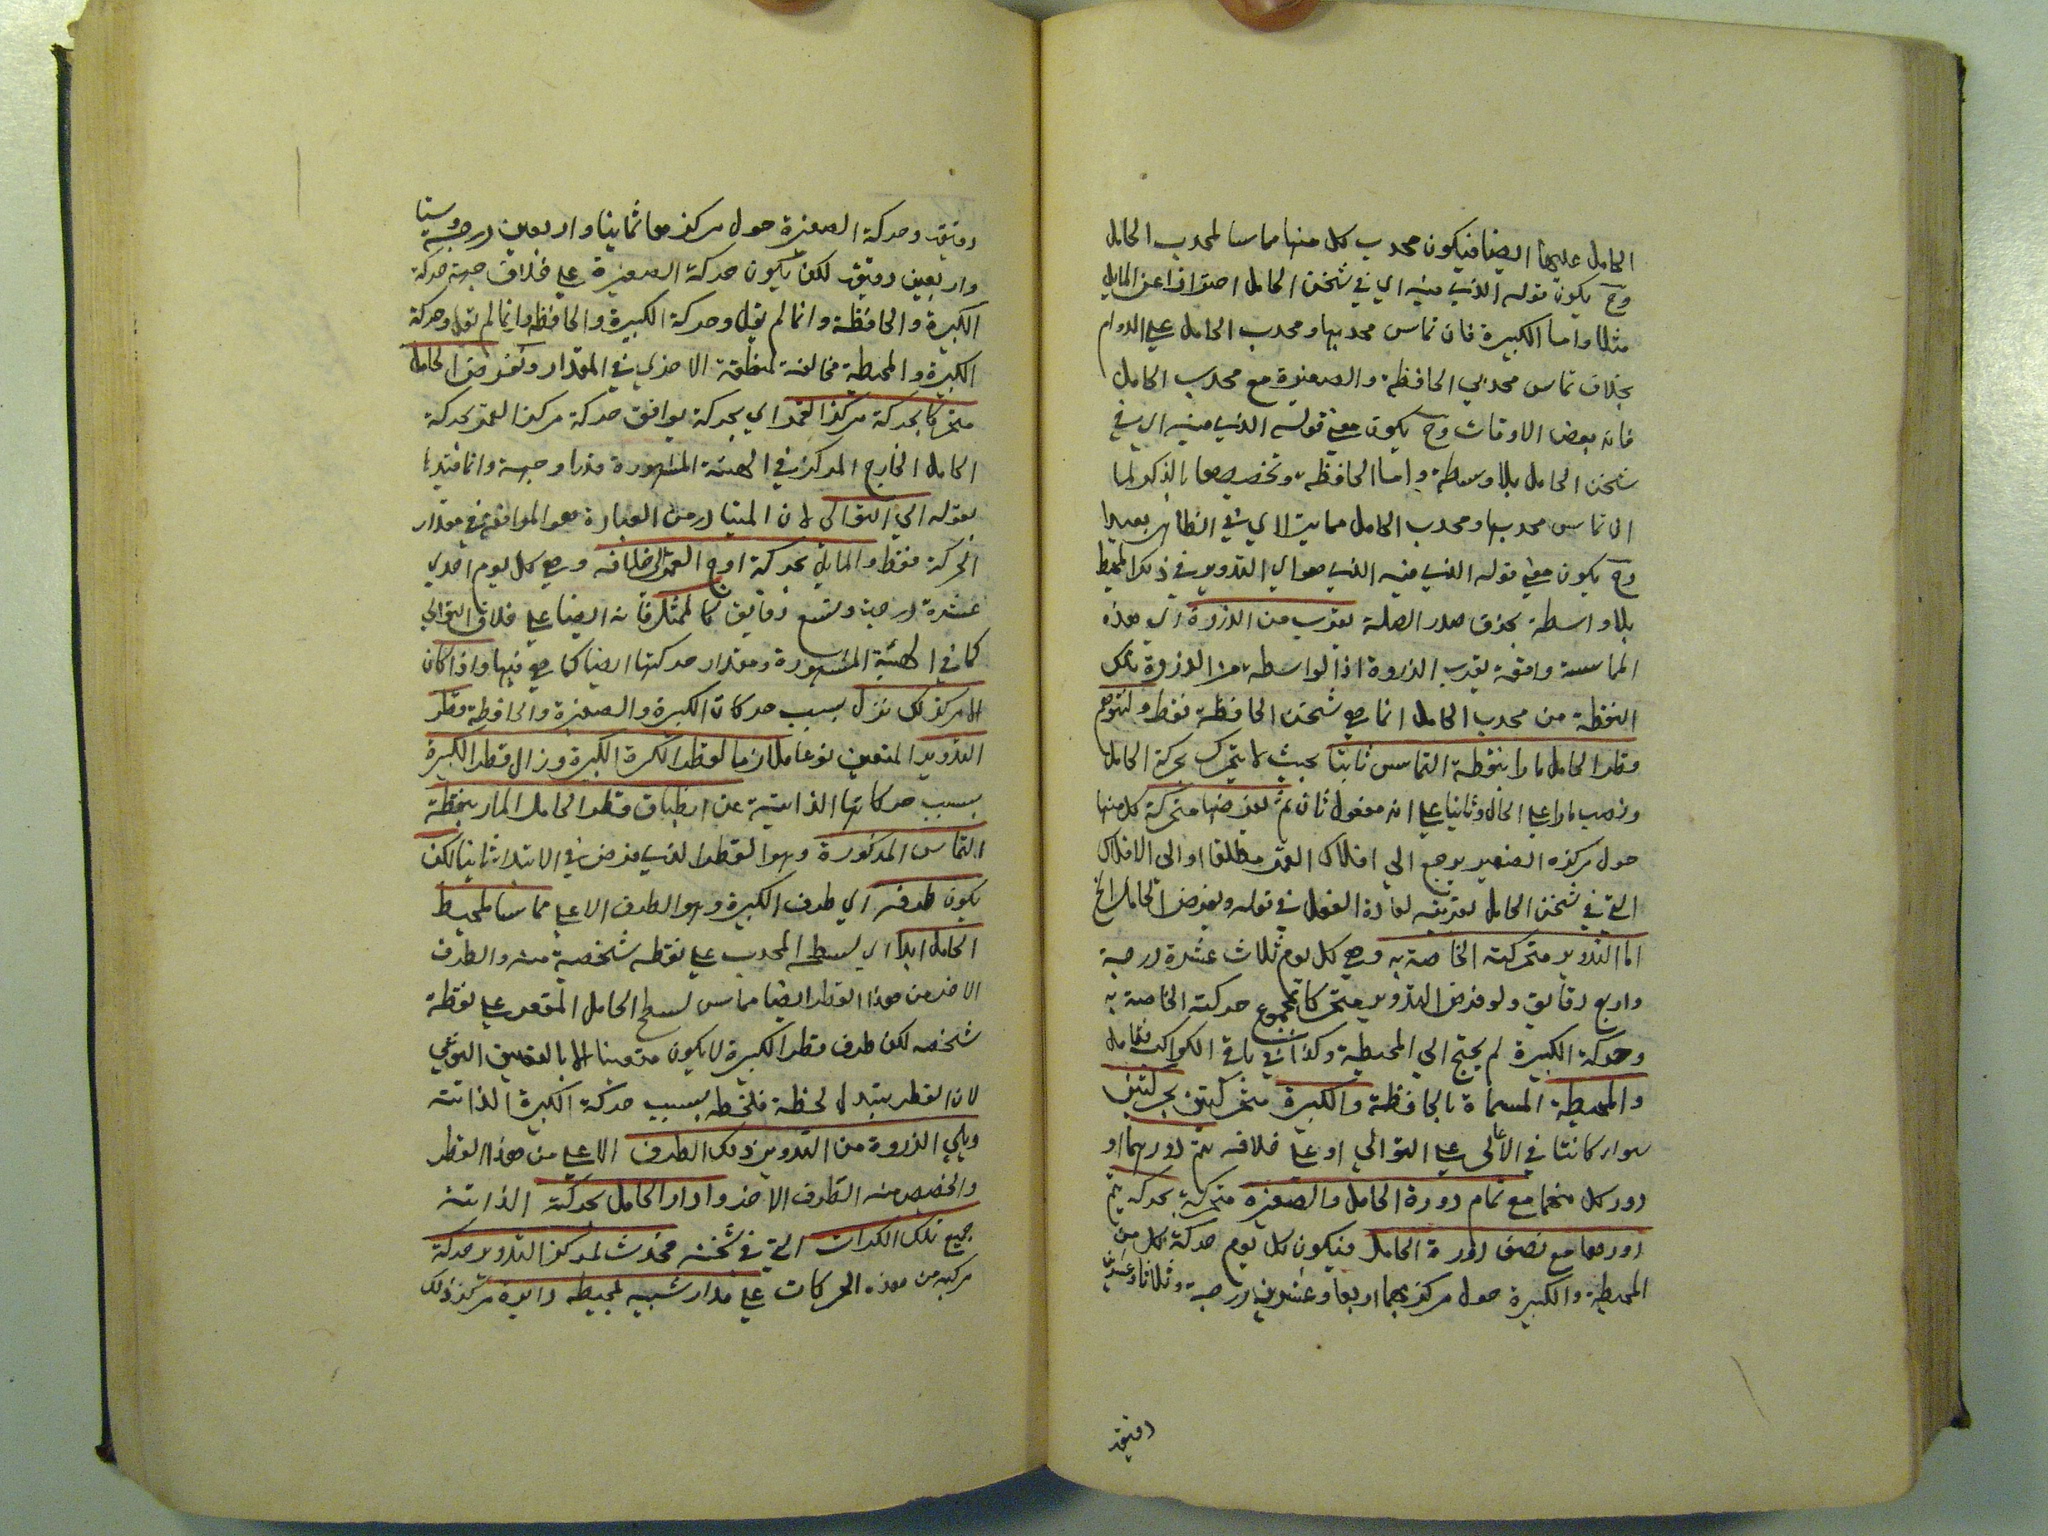 الحامل عليها ايضا فيكون محدب كل منها مماسا لمحدب الحامل
وح يكون قوله الذي فيه اي في ثخن الحامل احترازا عن المايل
مثلا واما الكبيرة فان تماس محدبها ومحدب الحامل على الدوام
بخلاف تماس محدبي الحافظة والصغيرة مع محدب الحامل
فانه بعض الاوقات وح يكون معنى قوله الذي فيه اي في
ثخن الحامل بلا وسطة واما الحافظة وتخصيصها بالذكر لما
ان تماس محدبها ومحدب الحامل مما يتراي في الظاهر بعيدا
وح يكون معنى قوله الذي فيه الذي هو اي التدوير في ذلك المحيط
بلا واسطة بحذف صدر الصلة بقرب من الذروة اي هذه
المماسة واقعة بقرب الذروة اذ الواسطة من الذروة بتلك
النقطة من محدب الحامل انما هي ثخن الحافظة فقط ولنتوهم
قطر الحامل مارا بنقطة التماس ثابتا بحيث لا يتحرك بحركة الحامل
ونصب مارا على الحال وثانيا على انه مفعول ثان ثم لنفرضها متحركة كل منها
حول مركزه الضمير يرجع الى افلاك القمر مطلقا او الى الافلاك
التي في ثخن الحامل بقرينة اعادة الفعل في قوله ونفرض الحامل الخ
اما التدوير متحركته الخاصة به وهي كل يوم ثلاث عشرة درجة
واربع دقايق ولو فرض التدوير متحركا بمجموع حركته الخاصة به
وحركة الكبيرة لم يحتج الى المحيطة وكذا في باقي الكواكب فتامل
والمحيطة المسماة بالحافظة والكبيرة متحركتين بحركتين
سواء كانتا في الاعالي على التوالي او على خلافه يتم دورهما او
دور كل منهما مع تمام دورة الحامل والصغيرة متحركة بحركة يتم
دورها مع نصف دورة الحامل فيكون كل يوم حركة كل من
المحيطة والكبيرة حول مركزيهما اربعا وعشرين درجة وثلاثا وعشرين
دقيقة
دقيقة وحركة الصغيرة حول مركزها ثمانيا واربعين درجة وستا
واربعين دقيقة لكن يكون حركة الصغيرة على خلاف جهة حركة
الكبيرة والحافظة وانما لم يقل وحركة الكبيرة والحافظة وانما لم يقل وحركة
الكبيرة والمحيطة مخالفة لمنطقة الاخرى في المقدار ونفرض الحامل
متحركا بحركة مركز القمر اي بحركة يوافق حركة مركز القمر بحركة
الحامل الخارج المركز في الهيئة المشهورة قدرا وجهة وانما قيدنا
بقوله الى التوالي لان المتبادر من العبارة هو الموافقة في مقدار
الحركة فقط والمايل بحركة اوج القمر الى خلافه وهي كل يوم احدي
عشرة درجة وتسع دقايق كالممثل فانه ايضا على خلاف التوالي
كما في الهيئة المشهورة ومقدار حركتها ايضا كما هي فيها واذا كان
الامر كذلك نزل بسبب حركات الكبيرة والصغيرة والحافظة قطر
التدوير المتعين نوعا ملازما لقطر الكرة الكبيرة وزال قطر الكبيرة
بسبب حركاتها الذاتية عن انطباق قطر الحامل المار بنقطة
التماس المذكورة وهو القطر الذي فرض في الابتدا ثانيا لكن
يكون طرفه اي طرف الكبيرة وهو الطرف الاعلى مماسا لمحيط
الحامل ابدا اي لسطحه المحدب على نقطة شخصية منه والطرف
الاخر من هذا القطر ايضا مماس لسطح الحامل المقعر على نقطة
شخصه لكن طرف قطر الكبيرة لا يكون متعينا الا بالتعين النوعي
لان القطر يتبدل لحظة فلحظة بسبب حركة الكبيرة الذاتية
ويلي الذروة من التدوير ذلك الطرف الاعلى من هذا القطر
والحضيض منه الطرف الاخر وادار الحامل بحركته الذاتية
جميع تلك الكرات التي في ثخنه فحدث لمركز التدوير حركة
مركبة من هذه الحركات على مدار شبيه لمحيطه دائرة مركز ذلك